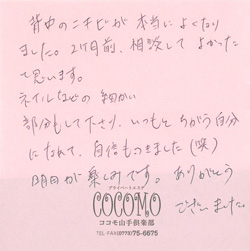 背中のニキビが本当によくなり
ました。2ヶ月前、相談してよかった
て思います。
ネイルなどの細かい
部分もして下さり、いつもとちがう自分
になれて、自信もつきました(笑)
明日が楽しみです。ありがとう
ございました。
プライベートエステ
COCOMO
ココモ山手倶楽部
TEL FAX(0773)75-6675